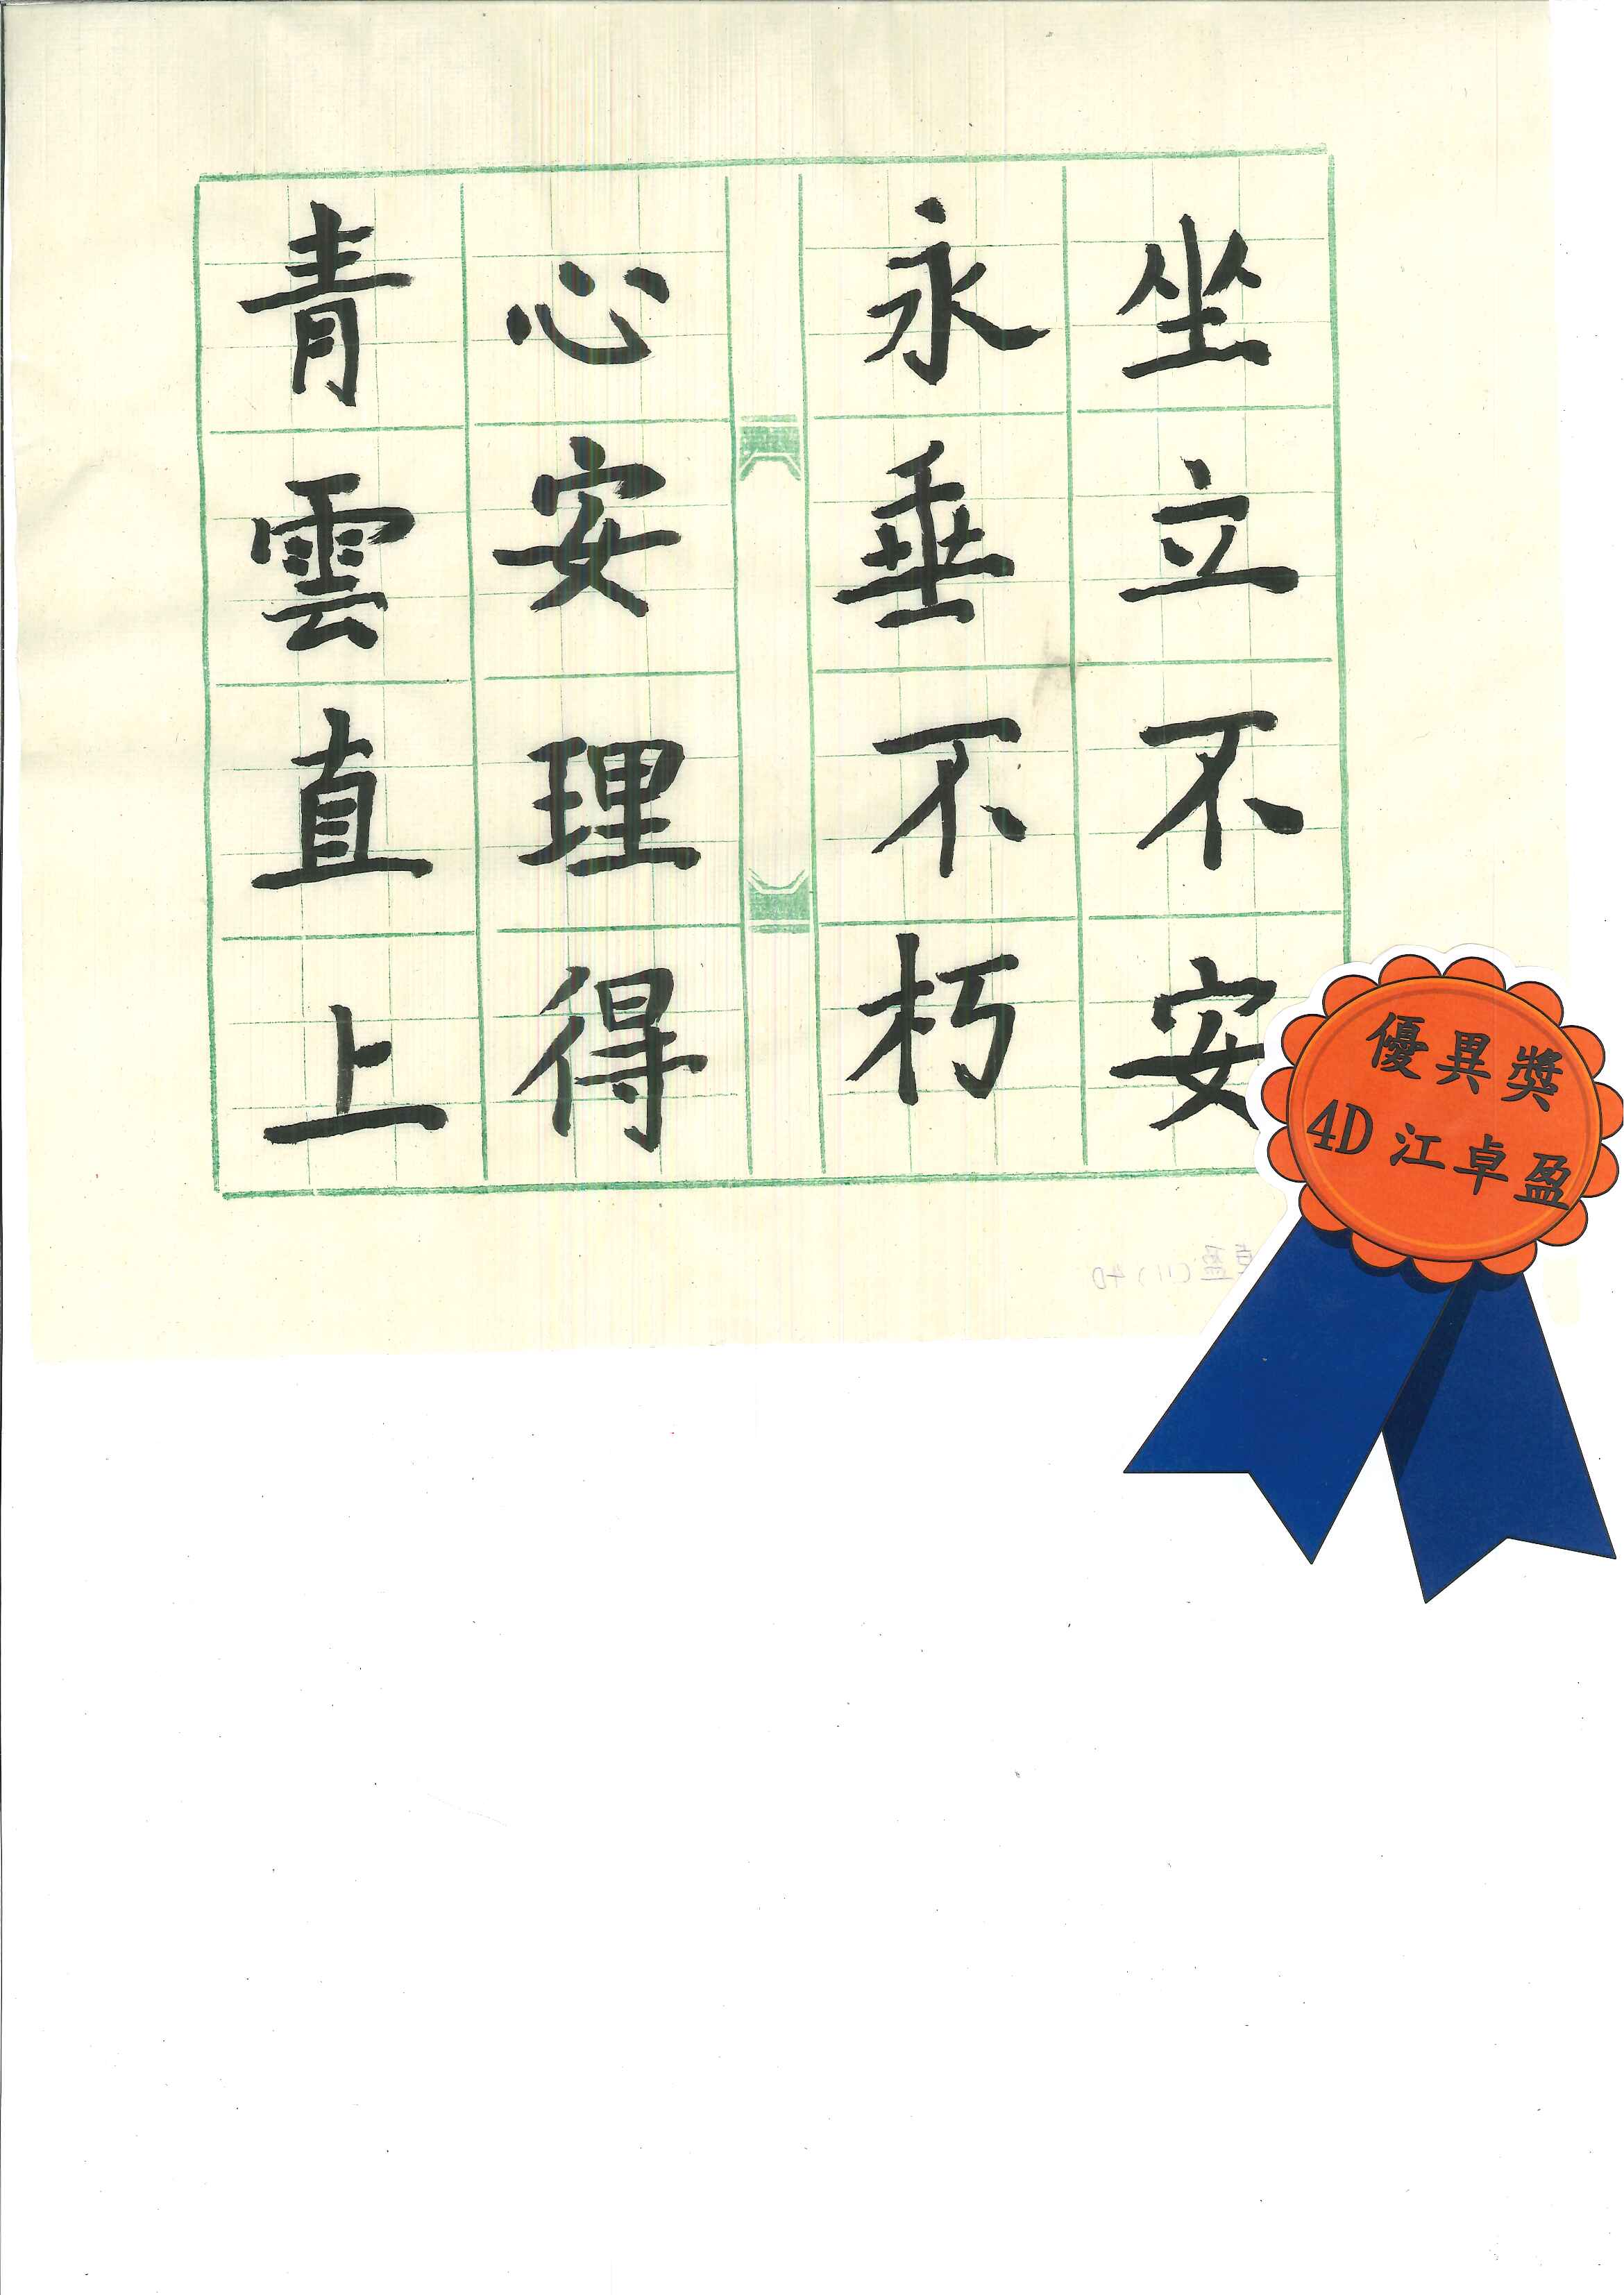 坐立不安
永垂不朽
心安理得
青雲直上
優異獎
4D 江卓盈
盈(11)4D